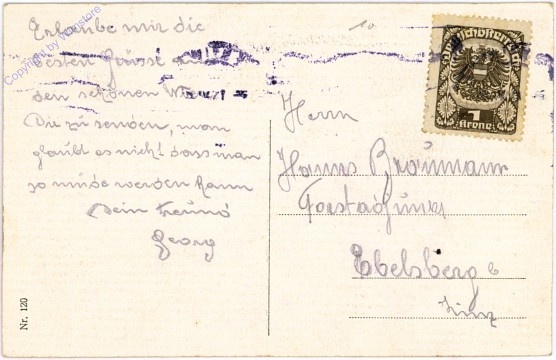 Erlaube mir die
besten Grüsse aus
den schönen Wien
Dir zu senden, man
glaubt es nicht dass man
so müde werden kann
Dein Freund
Georg
Herrn
Hanns Braumann
Forstadjunkt
Ebelsberg b
Linz
Nr. 120
Deutschösterreich
1
Krone
10
Copyright by Wapstore